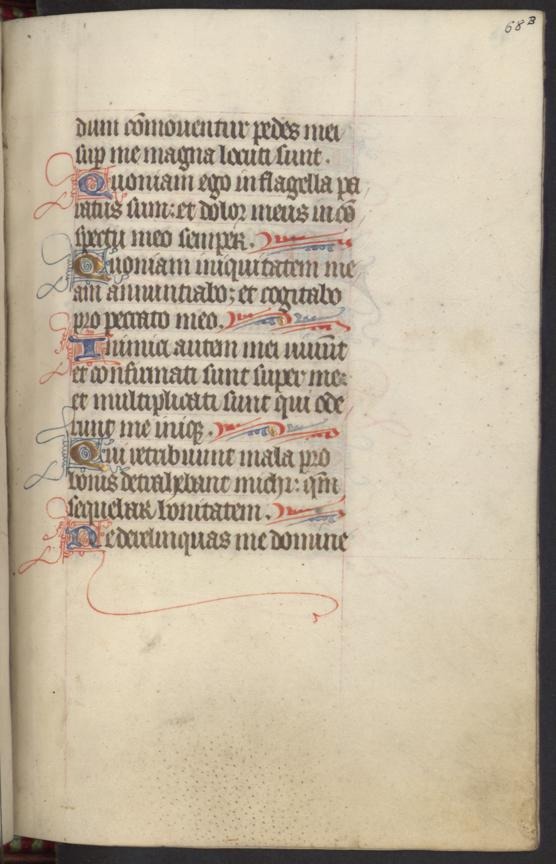 68B
dum cōmouentur pedes mei
sup me magna locuti sunt.
Quoniam ego in flagella pa
ratus sum: et dolor meus in cō
spectu meo semper.
Quoniam iniquitatem me
am annuntiabo: et cogitabo
pro peccato meo.
Inimici autem mei uiuūt
et confirmati sunt super me:
et multiplicati sunt qui ode
runt me iniq̄.
Qui retribuunt mala pro
bonis detrahebant michi: qm̄
sequebar bonitatem.
Ne derelinquas me domine